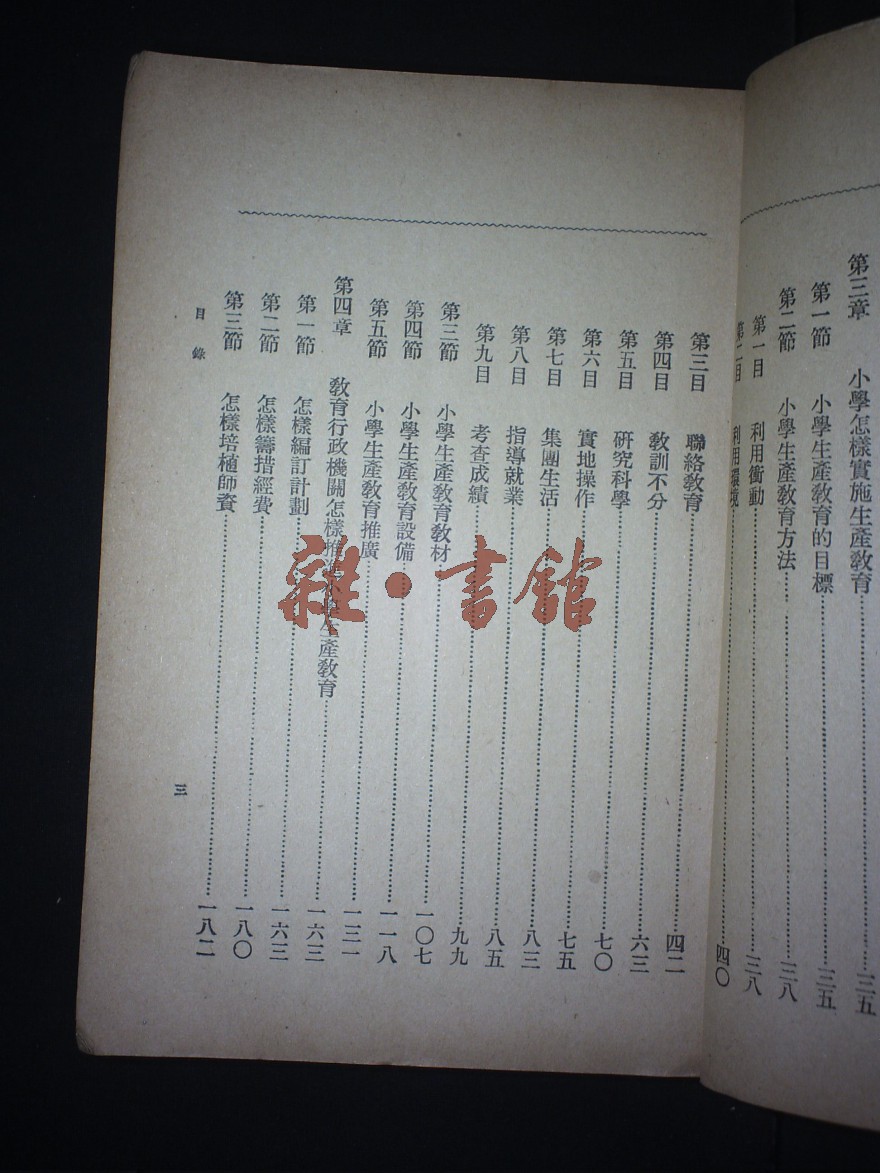 第三章　小學怎樣實施生產教育……三五
第一節　小學生產教育的目標……三五
第二節　小學生產教育方法……三八
第一目　利用衝動……三八
第二目　利用環境……四〇
第三目　聯絡教育……四二
第四目　教訓不分……六三
第五目　研究科學……七〇
第六目　實地操作……七五
第七目　集團生活……八三
第八目　指導就業……八五
第九目　考查成績……九九
第三節　小學生產教育教材……一〇七
第四節　小學生產教育設備……一一八
第五節　小學生產教育推廣……一三一
第四章　教育行政機關怎樣推進小學生產教育……一六三
第一節　怎樣編訂計劃……一六三
第二節　怎樣籌措經費……一八〇
第三節　怎樣培植師資……一八二
目錄
三
雜·書館